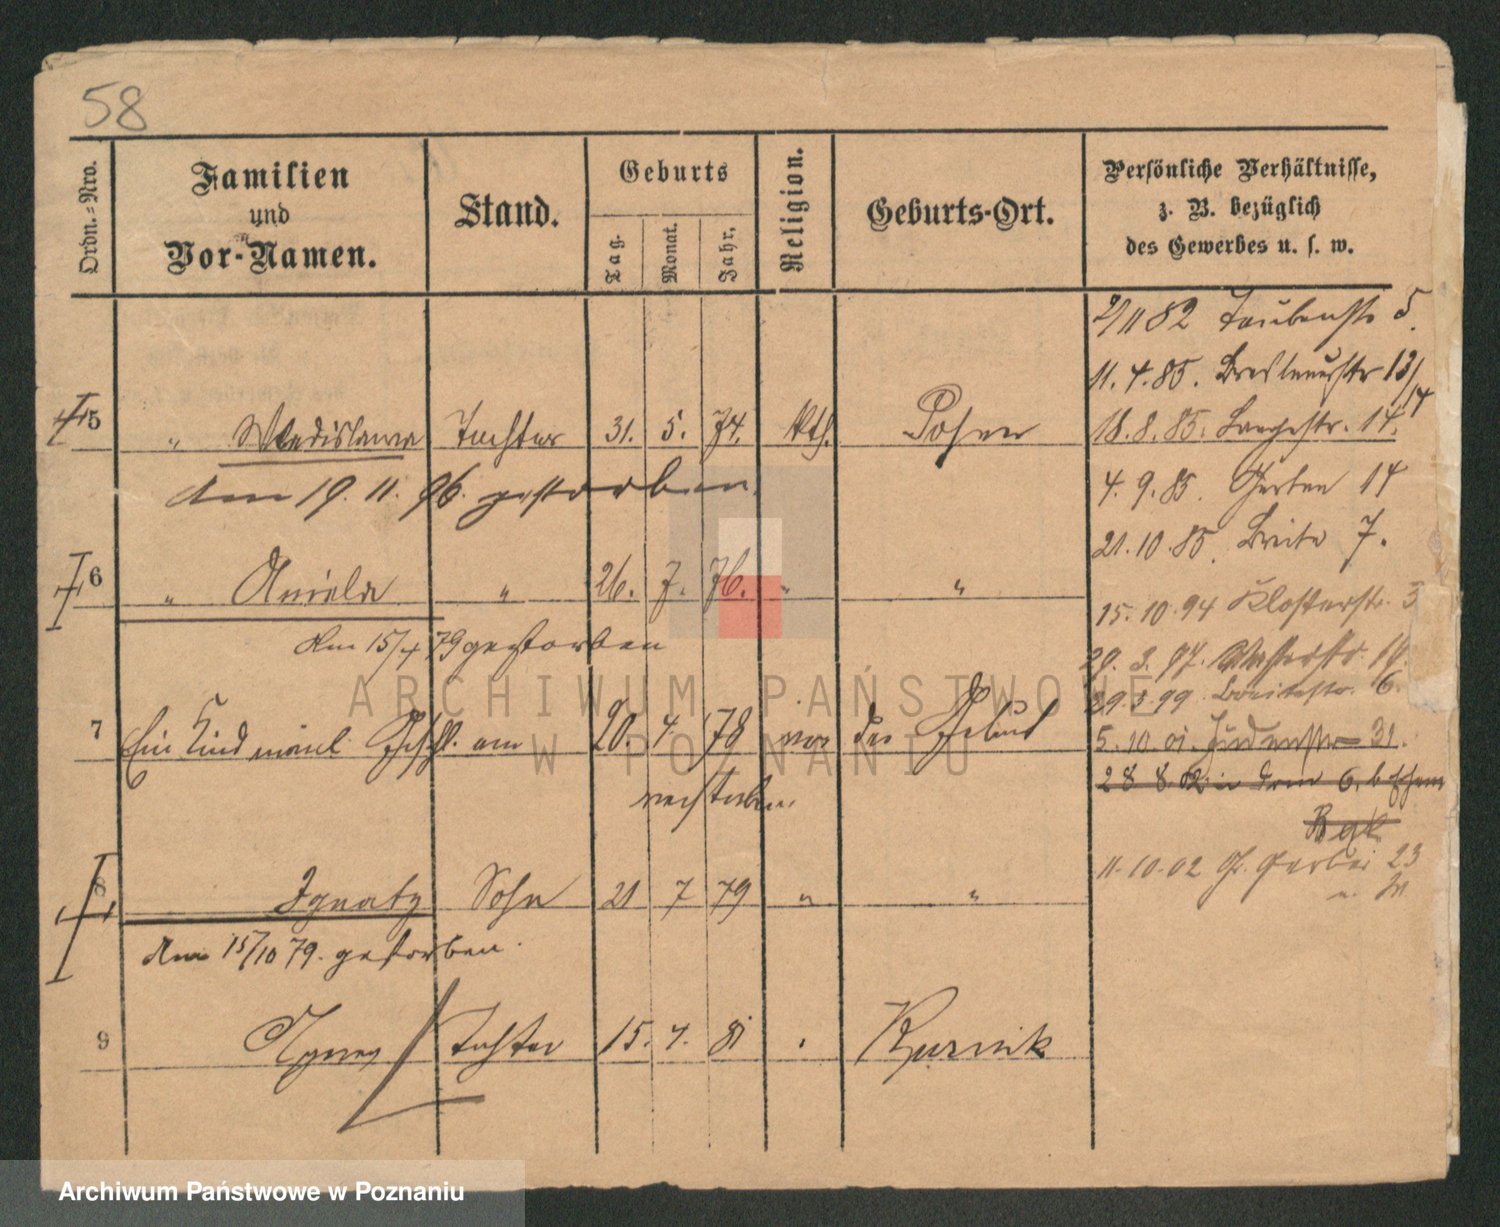 58
Ordn.-Nro. Familien und Vor-Namen. Stand. Geburts Tag. Monat. Jahr. Religion. Geburts-Ort. Persönliche Verhältnisse, z. B. bezüglich des Gewerbes u. s. w.
2/11 82 Taubenstr 5.
11. 4. 85. Breslauerstr 13/14
5 " Wladislawa Tochter 31. 5. 74. kth. Posen
18. 8. 85. Langestr. 14.
am 19. 11. 96. gestorben.
4. 9. 85. Gerber 14
21. 10. 85. Breite 7.
6 " Aniela " 26. 7. 76. " "
15. 10. 94 Klosterstr. 3
Am 15/4 79 gestorben
29. 3. 97. Wasserstr. 14.
29. 3. 99. Breitestr. 6.
7 Ein Kind männl. Geschl. am 20. 4. 78 vor der Geburt
5. 10. 01. Judenstr 31.
verstorben.
28 8. 02
11. 10. 02 Gr. Gerber 23
8 Ignatz Sohn 21 7 79 " "
Am 15/10 79. gestorben.
9 Agnes Tochter 15. 4. 81 " Kurnik
ARCHIWUM PAŃSTWOWE
W POZNANIU
Archiwum Państwowe w Poznaniu